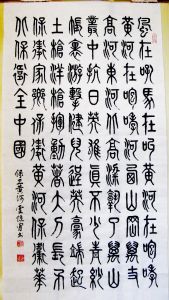 風在吼馬在叫黃河在咆哮
黃河在咆哮河西山岡萬丈
高河東河北高粱熟了萬山
叢中抗日英雄真不少青紗
帳裏游擊健兒逞英豪端起了
土槍洋槍揮動著大刀長矛
保衛家鄉保衛黃河保衛華
北保衛全中國
保衛黃河